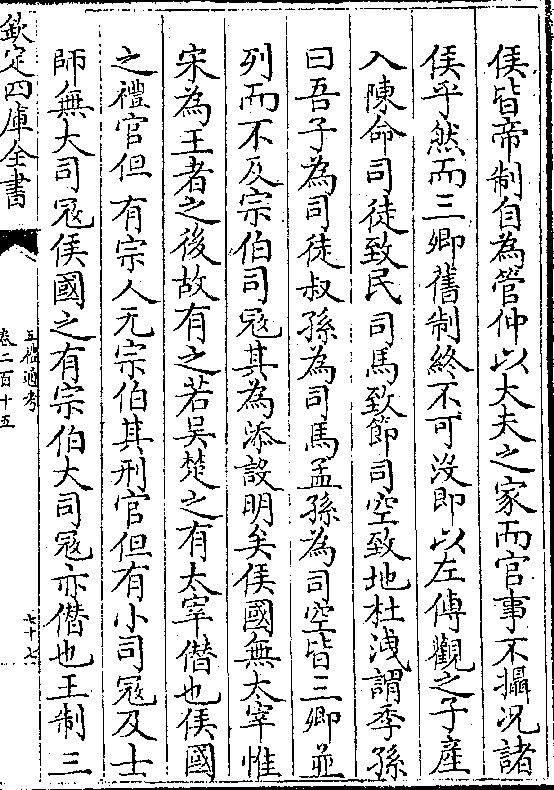 侯皆帝制自為管仲以大夫之家而官事不攝况諸
侯乎然而三卿舊制終不可没即以左傳觀之子產
入陳命司徒致民司馬致節司空致地杜洩謂季孫
曰吾子為司徒叔孫為司馬孟孫為司空皆三卿並
列而不及宗伯司冦其為添設明矣侯國無太宰惟
宋為王者之後故有之若吴楚之有太宰僭也侯國
之禮官但有宗人无宗伯其刑官但有小司冦及士
師無大司冦侯國之有宗伯大司冦亦僭也王制三
欽定四庫全書
五禮通考
卷二百十五
七十七